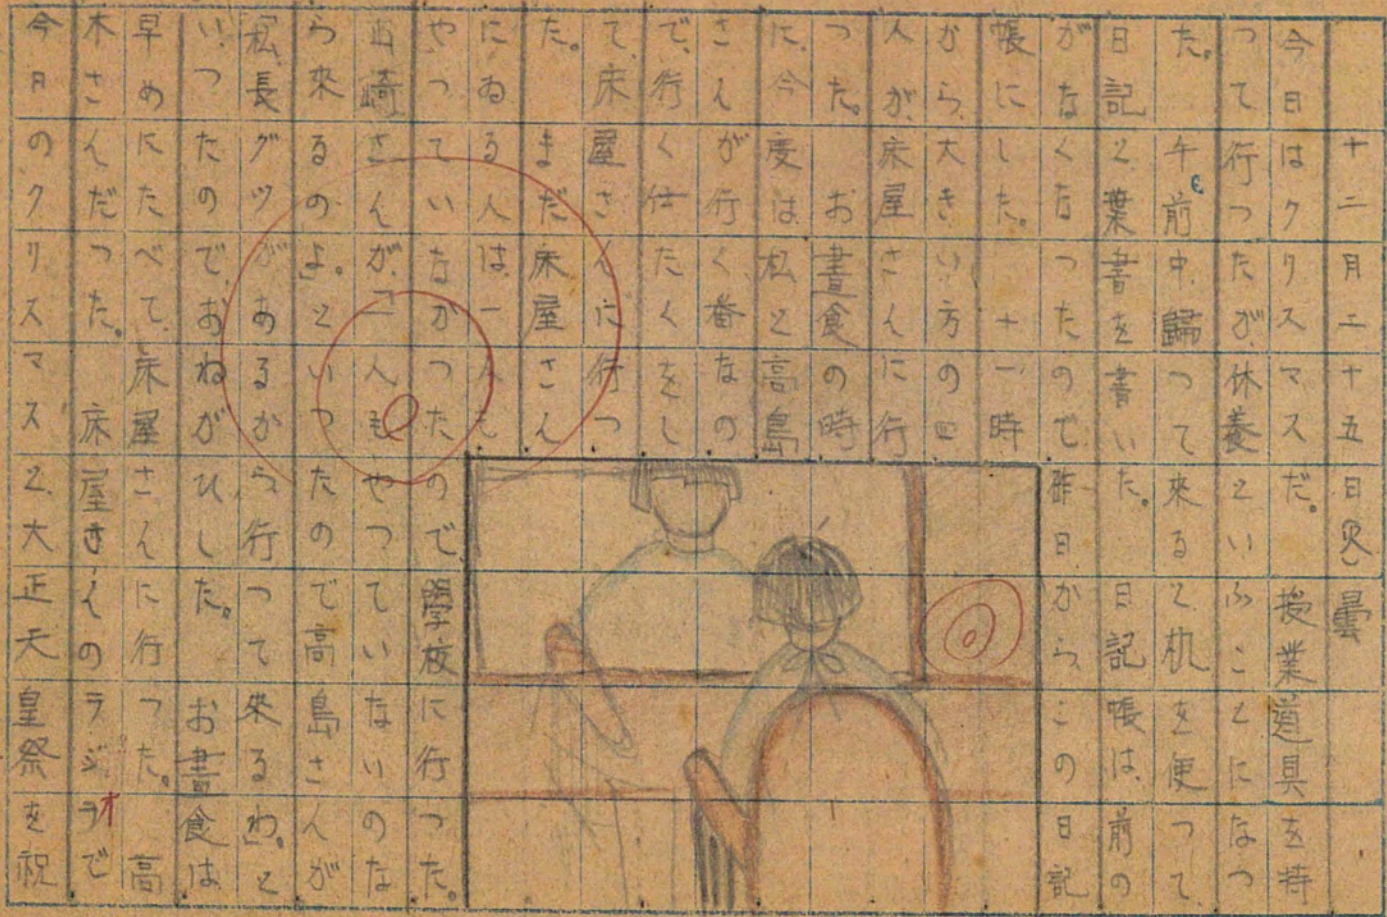 十二月二十五日(火)曇
今日はクリスマスだ。 授業道具を持
つて行つたが、休養といふことになつ
た。 午前中、歸つて来ると机を使つて、
日記と葉書を書いた。 日記帳は、前の
がなくなつたので、昨日からこの日記
帳にした。 十一時
から、大きい方の四
人が、床屋さんに行
つた。 お晝食の時
に、今度は私と高島
さんが行く番なの
で、行く仕たくをし
て、床屋さんに行つ
た。 まだ床屋さん
にゐる人は、一人も
やつていなかつたので、學校に行つた。
山崎さんが、「一人もやつていないのな
ら來るのよ。」といつたので高島さんが
「私、長グツがあるから行つて來るわ。」と
いつたので、おねがひした。 お晝食は
早めにたべて、床屋さんに行つた。 高
木さんだつた。 床屋さんのラジヲオで
今日のクリスマスと、大正天皇祭を祝